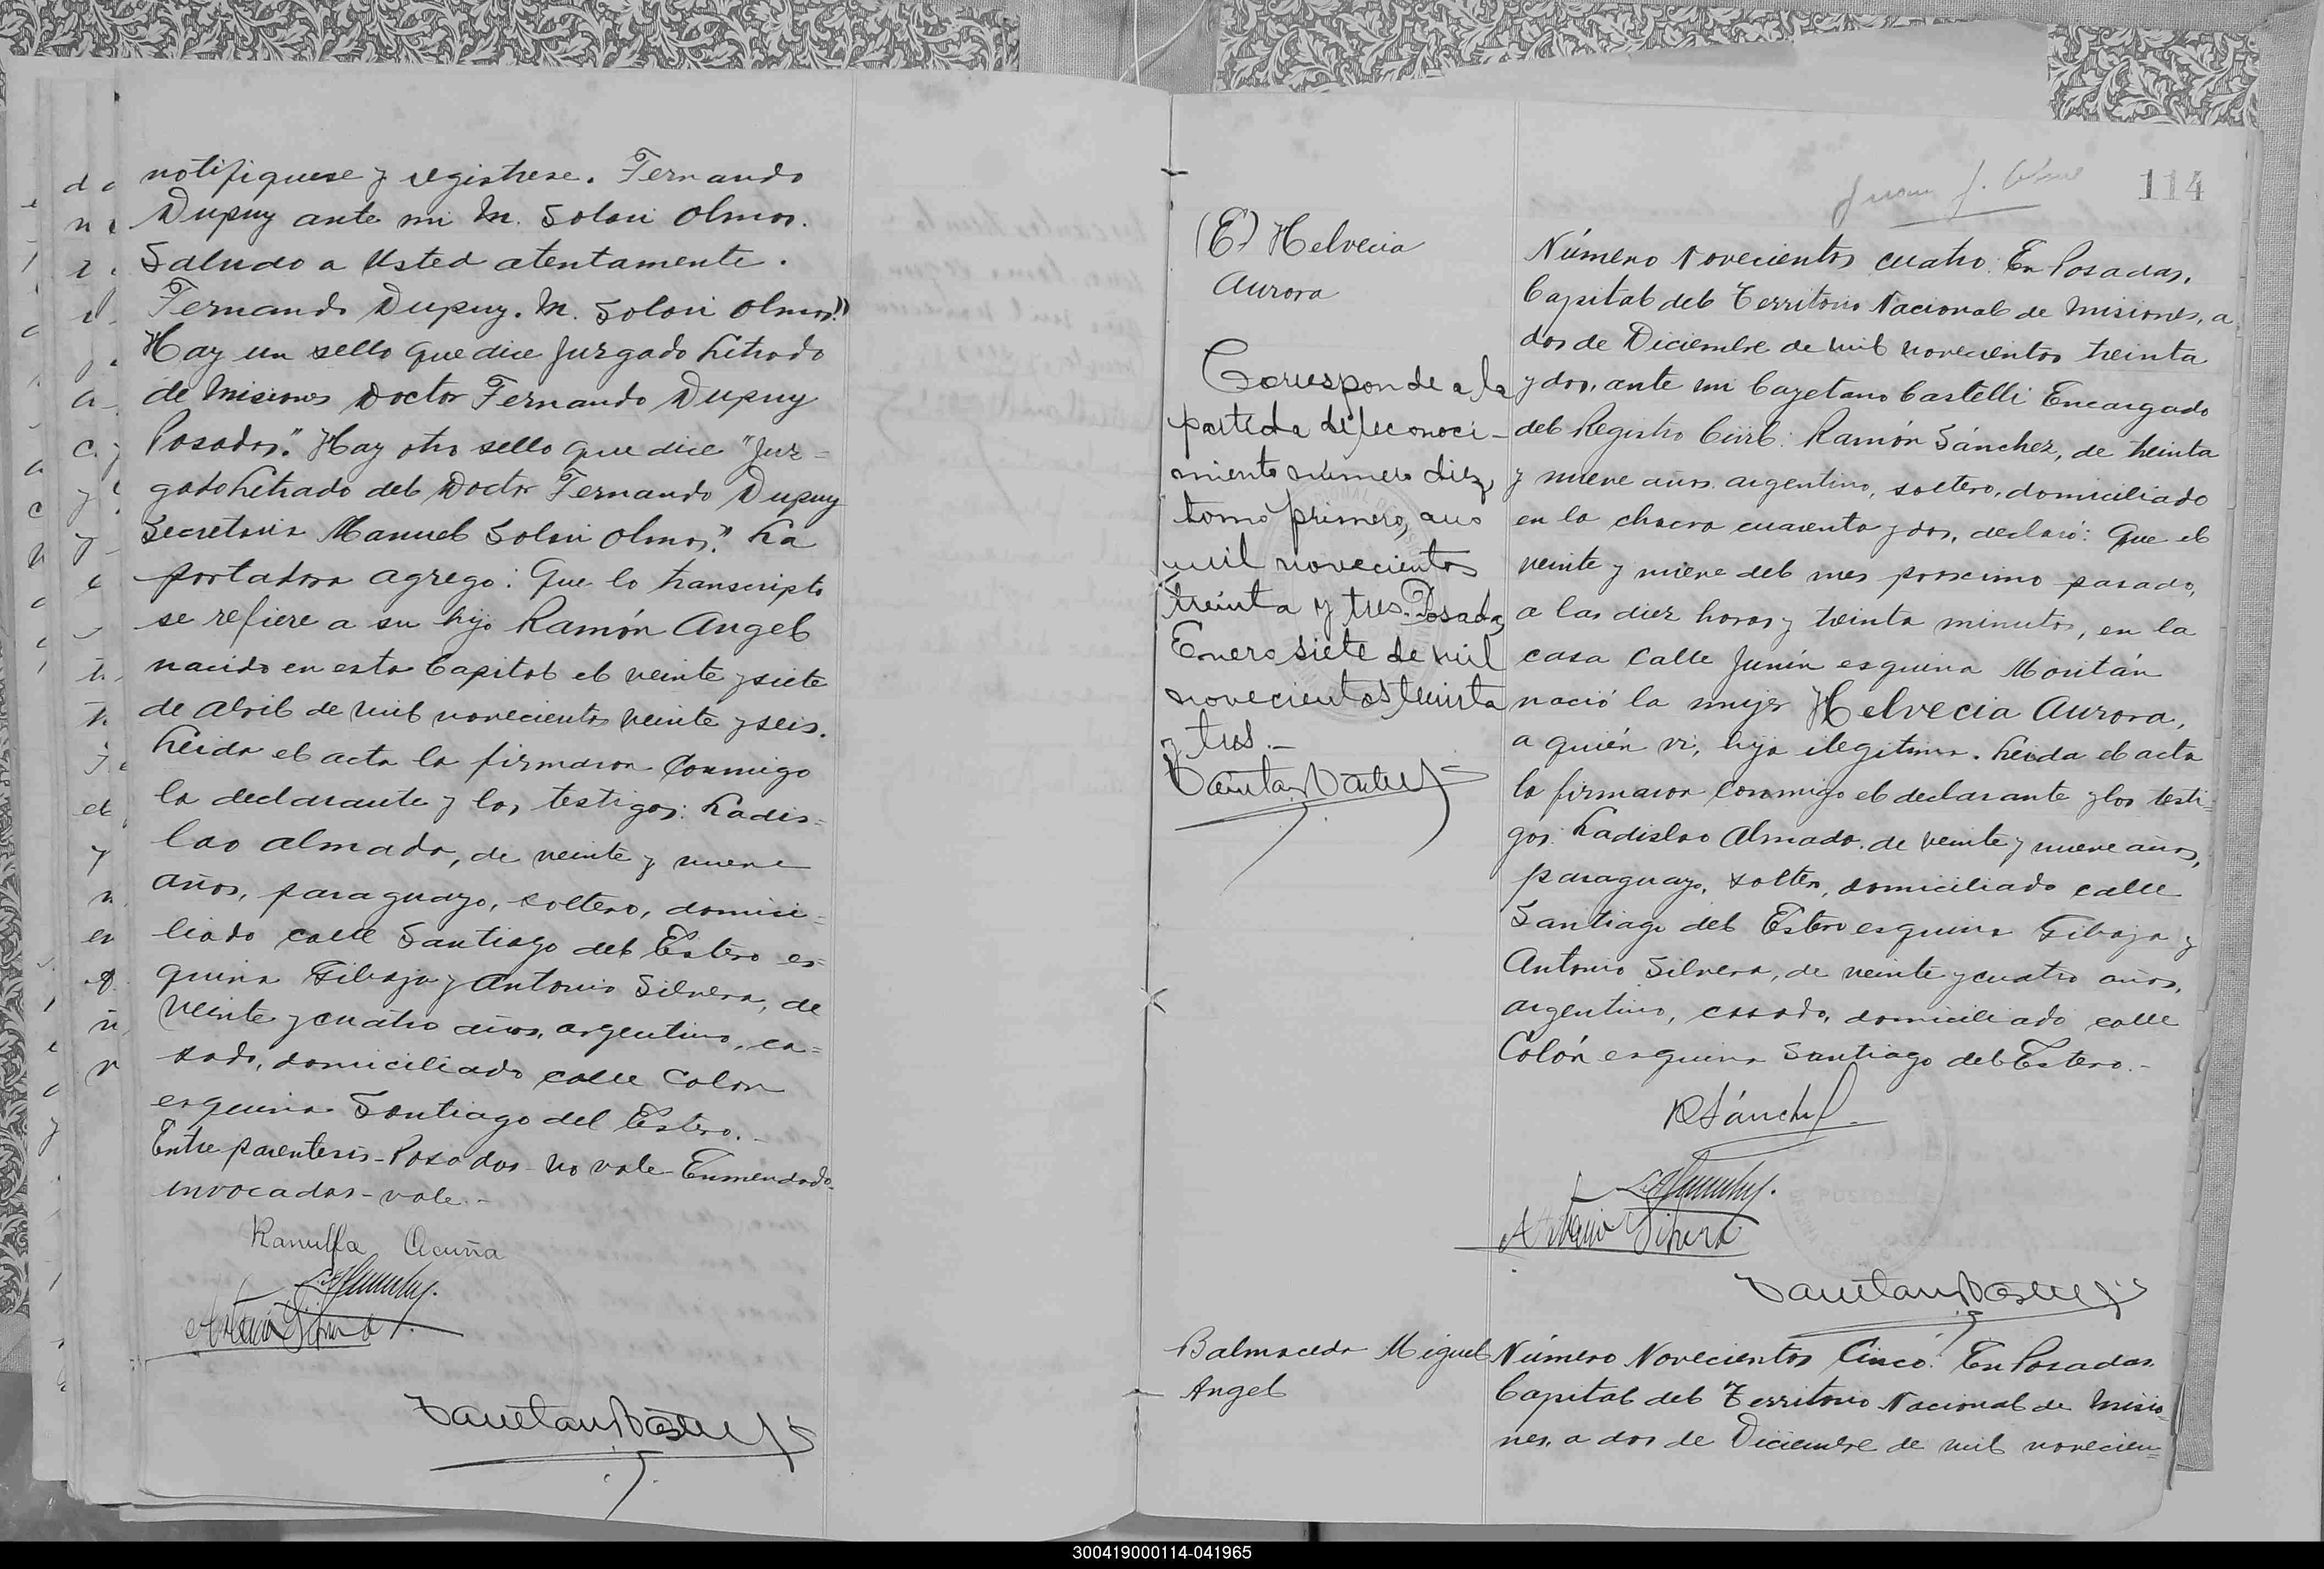 notifiquese y registrese. Fernando
Dupuy ante mi M. Solari Olmos.
Saludo a Usted atentamente.
Fernando Dupuy. M. Solari Olmos."
Hay un sello que dice Juzgado Letrado
de Misiones Doctor Fernando Dupuy
Posadas." Hay otro sello que dice "Juz=
gado Letrado del Doctor Fernando Dupuy
Secretaria Manuel Solari Olmos." La
portadora agregó: Que lo transcripto
se refiere a su hijo Ramón Angel
nacido en esta Capital el veinte y siete
de Abril de mil novecientos veinte y seis.
Leida el acta la firmaron conmigo
la declarante y los testigos: Ladis=
lao Almada, de veinte y nueve
años, paraguayo, soltero, domici=
liado calle Santiago del Estero es=
quina Tibaja y Antonio Silvera, de
veinte y cuatro años, argentino, ca=
sado, domiciliado calle Colon
esquina Santiago del Estero.-
Entre parentesis-Posadas-no vale-Enmendado-
invocadas-vale.-
Ranulfa Acuña
Antonio Silvera
114
(E) Helvecia
Aurora
Corresponde a la
partida de reconoci-
miento número diez,
tomo primero, año
mil novecientos
treinta y tres. Posadas
Enero siete de mil
novecientos treinta
y tres.-
Número Novecientos cuatro: En Posadas,
Capital del Territorio Nacional de Misiones, a
dos de Diciembre de mil novecientos treinta
y dos, ante mi Cayetano Castelli Encargado
del Registro Civil: Ramón Sánchez, de treinta
y nueve años, argentino, soltero, domiciliado
en la chacra cuarenta y dos, declaró: Que el
veinte y nueve del mes proscimo pasado,
a las diez horas y treinta minutos, en la
casa calle Junín esquina Moritán
nació la mujer Helvecia Aurora,
a quién vi, hija ilegitima. Leida el acta
la firmaron conmigo el declarante y los testi=
gos: Ladislao Almada, de veinte y nueve años,
paraguayo, soltero, domiciliado calle
Santiago del Estero esquina Tibaja y
Antonio Silvera, de veinte y cuatro años,
argentino, casado, domiciliado calle
Colón esquina Santiago del Estero.-
R Sánchez
Antonio Silvera
Balmaceda Miguel
Angel
Número Novecientos Cinco: En Posadas,
Capital del Territorio Nacional de Misio=
nes, a dos de Diciembre de mil novecien=
300419000114-041965